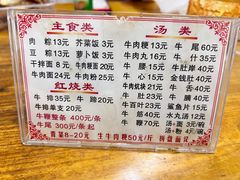 主食类
肉粽13元 芥菜饭3元
豆粽13元 萝卜饭3元
干拌面8元 牛肉粳面20元
牛肉面24元 牛肉粉25元
红烧类
牛排35元 牛蹄20元
牛排单支20元
牛鞭整条400元/条
牛尾300元/条起
青菜8-20元
汤类
牛肉粳13元 牛尾60元
牛肉丸16元 牛什35元
牛腰15元 牛肚岸40元
牛心15元 金钱肚40元
牛肉炕块21元 牛舌35元
牛肚21元 牛大骨30元
牛百叶23元 鲨鱼片15元
牛筋40元 水丸汤12元
牛鞭70元
生牛肉粳50元/斤